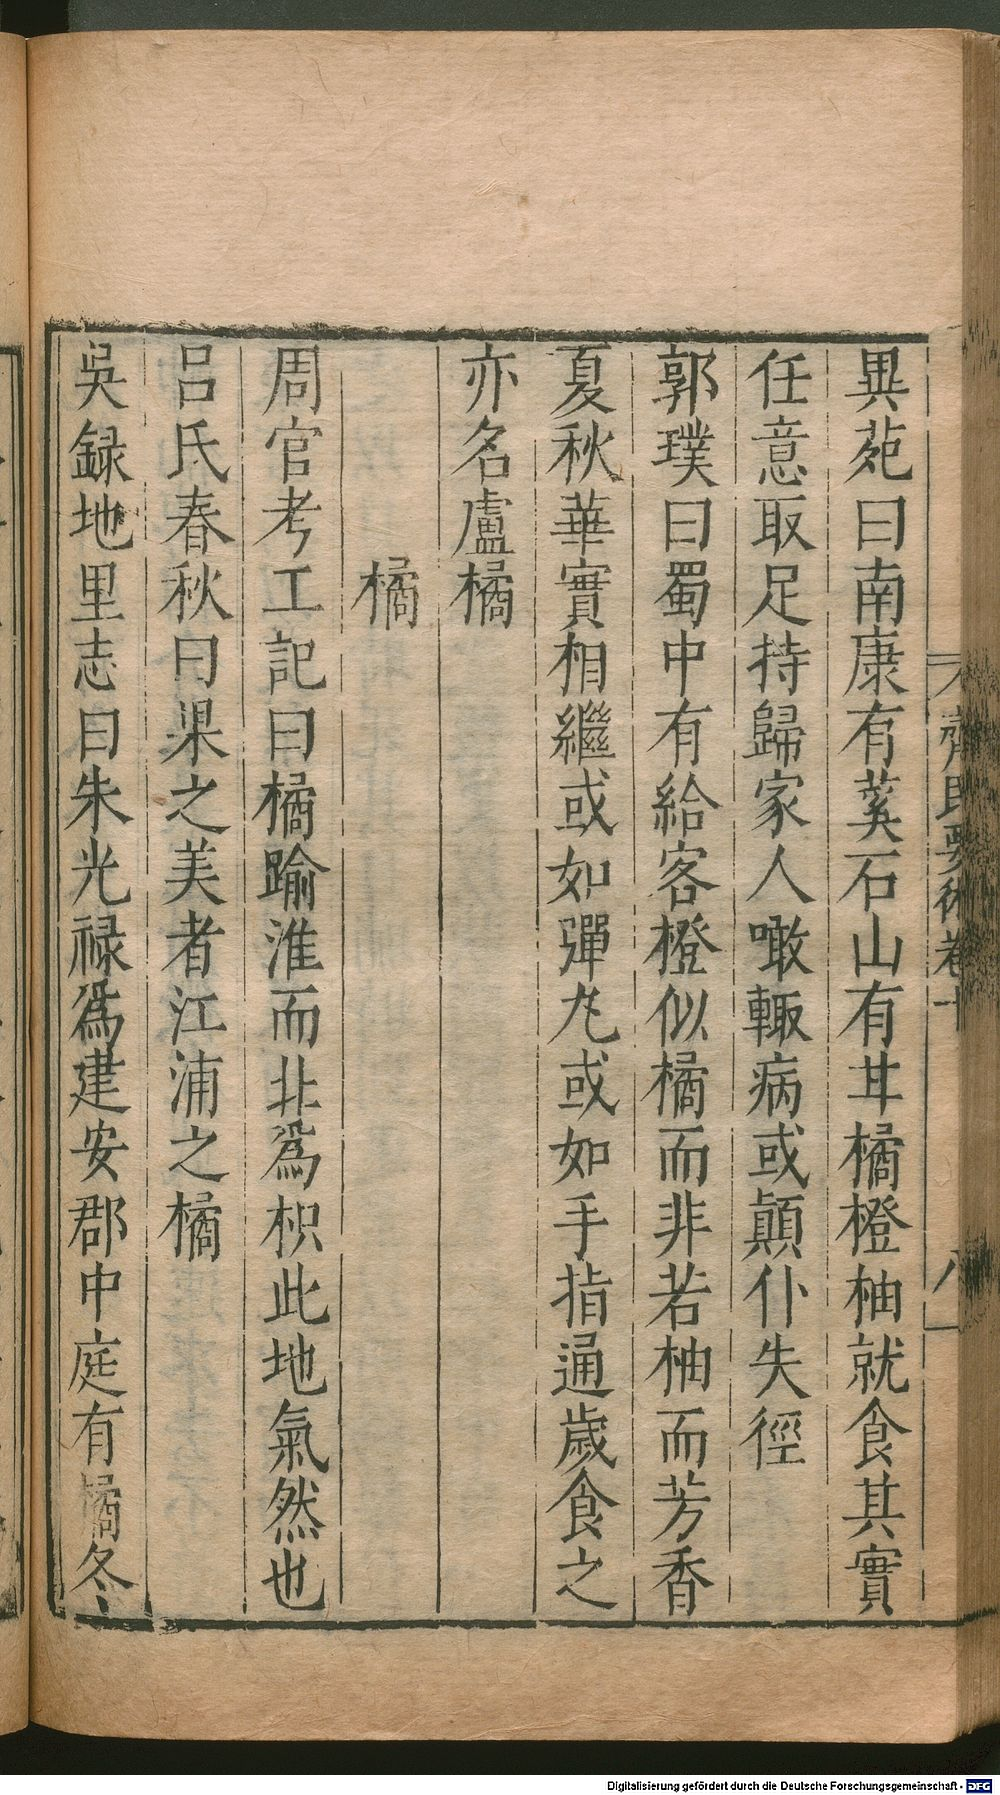 異苑曰南康有蓂石山有甘橘橙柚就食其實
任意取足持歸家人噉輙病或顛仆失徑
郭璞曰蜀中有給客橙似橘而非若柚而芳香
夏秋華實相繼或如彈丸或如手指通歲食之
亦名盧橘
橘
周官考工記曰橘踰淮而北爲枳此地氣然也
呂氏春秋曰果之美者江浦之橘
吳録地里志曰朱光禄爲建安郡中庭有橘冬
齊民要術卷十
八
Digitalisierung gefördert durch die Deutsche Forschungsgemeinschaft - DFG